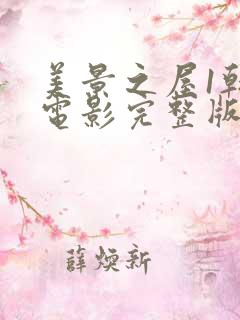 美景之屋1韩
电影完整版
薛焕新